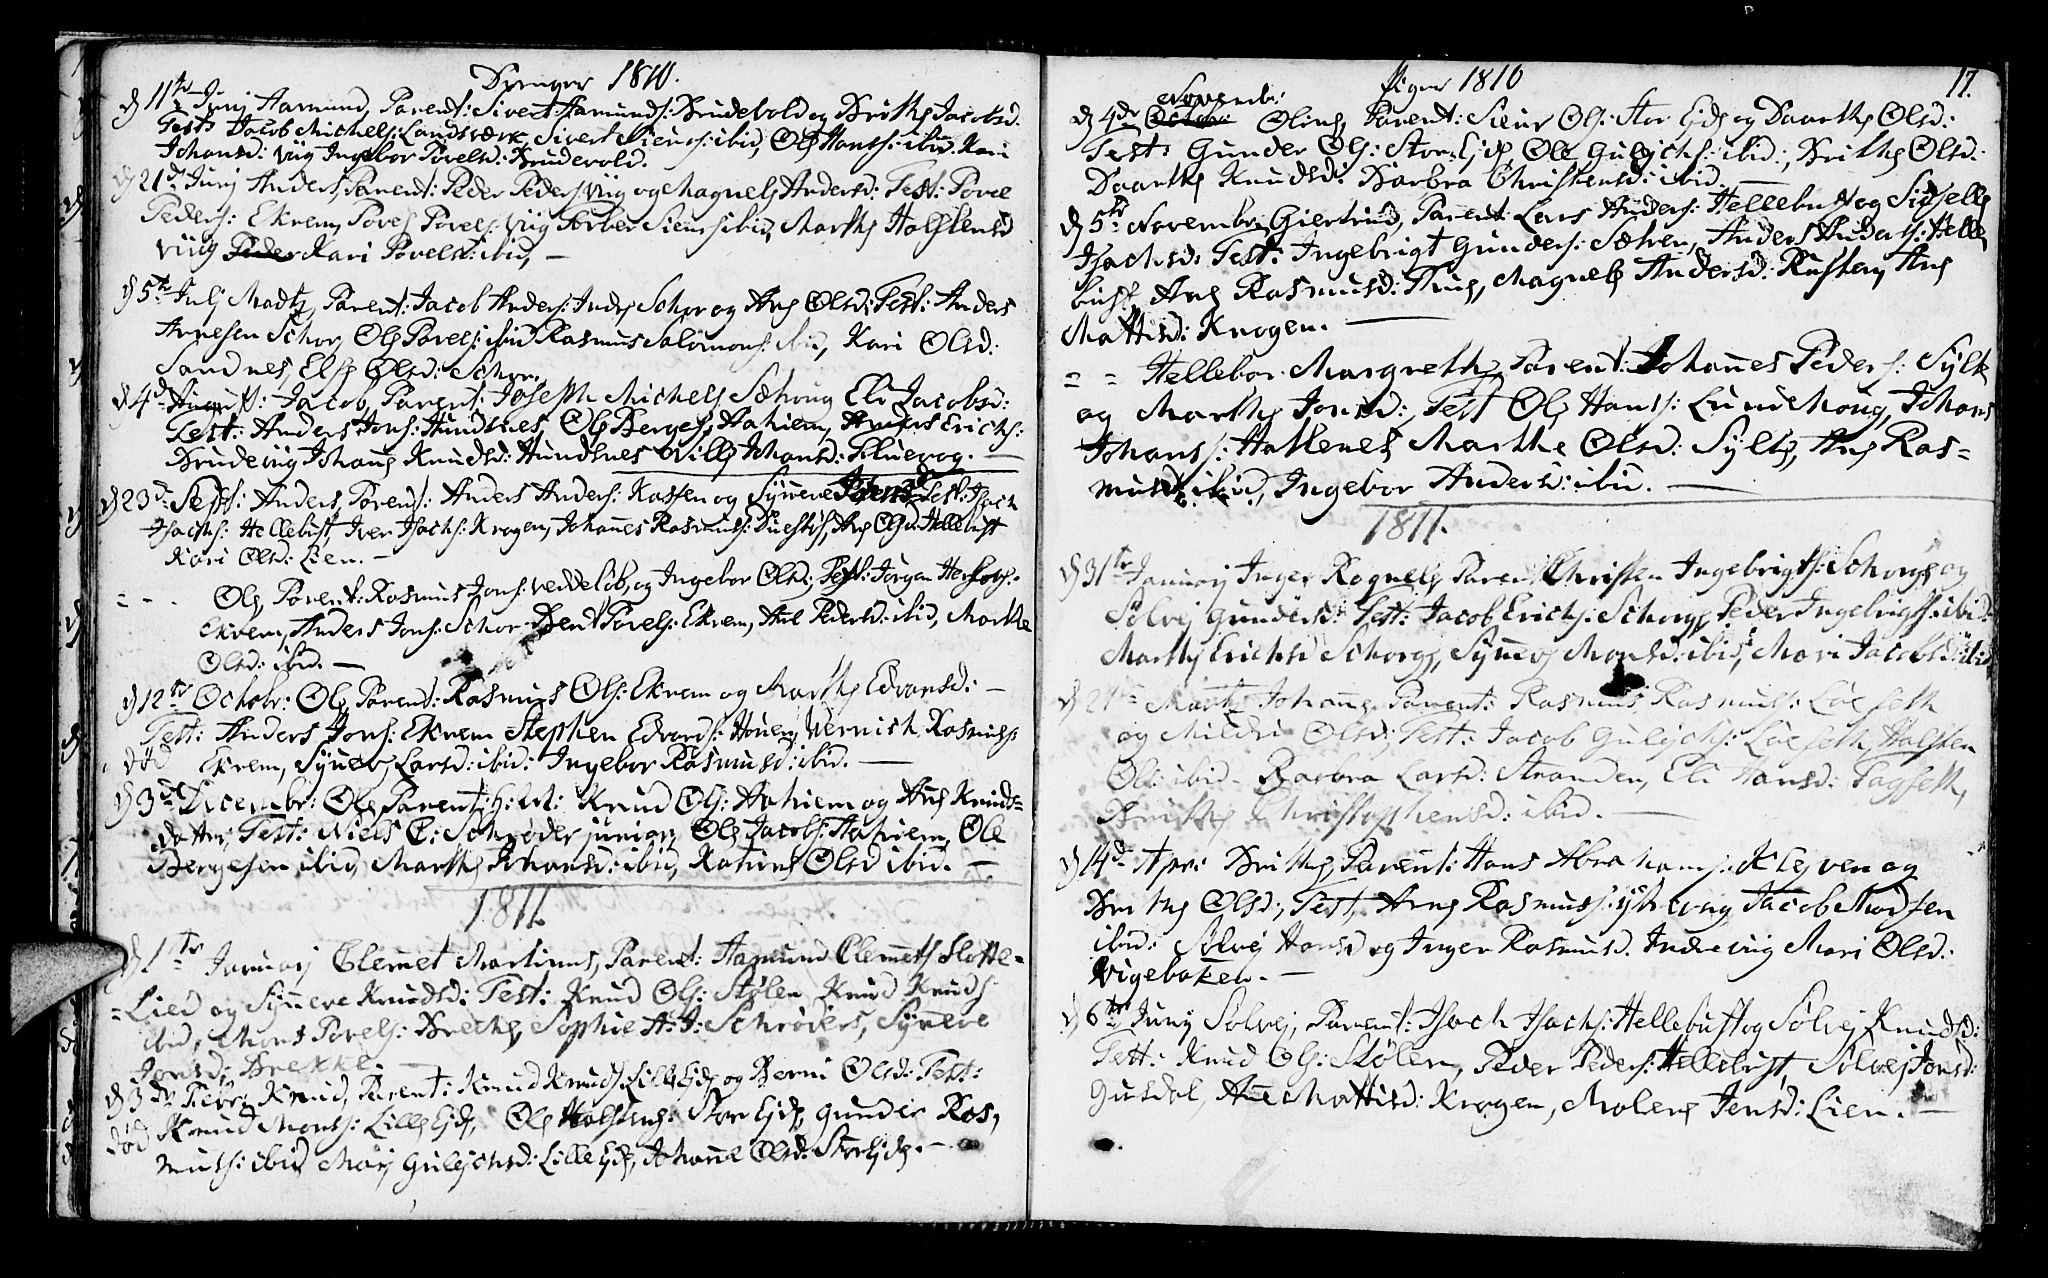 Drenger 1810.
d 11te Junj Aamund, Parent: Sivert Aamunds: Brudevold og Brithe Jacobsd:
Test: Jacob Michels: Landsværk, Sivert Siurs: ibid, Ole Hans: ibid. Kari
Johansd: Viig Ingebor Povelsd: Brudevold.
d 21de Junj Anders, Parent: Peder Peders: Viig og Magnele Andersd: Test: Povel
Peders: Ekrem, Povel Povels: Viig Torber Siurs: ibid, Marthe Holstensd
Viig Peder Kari Povelsd: ibid, —
d 5te Julj Madtz, Parent: Jacob Anders: Indre Schor og Ane Olsd: Test: Anders
Arnesen Schor, Ole Povels: ibid Rasmus Salomons: ibid, Kari Olsd:
Sandnes, Else Olsd: Schor.
d 4de August: Jacob, Parent: Joseph Michels Eli Jacobsd:
Test: Anders Jons: Hundsnes, Ole Berges: Aahiem, Anders Erichs:
Brudeviig Johane Knudsd: Hundsnes Johansd: Fluevog. —
d 23de Sept: Anders, Parent: Anders Anders: Kossen og Synneve Test: Isach
Isachs: Hellebust, Iver Isachs: Krogen, Johannes Rasmuss: Ane Olsd: Hellebust
Kari Olsd: Lien. —
= - - Ole, Parent: Rasmus Jons: Veddeløb, og Ingebor Olsd: Test: Jørgen
Ekrem, Anders Jons: Schor Bent Povels: Ekrem, Ane Pedersd: ibid, Marthe
Olsd: ibid. —
d 12te Octobr: Ole, Parent: Rasmus Ols: Ekrem og Marthe Edvarsd: —
Test: Anders Jons: Ekrem Stephen Edvards: Wernich Rasmuss:
død Ekrem, Synneve Larsd: ibid: Ingebor Rasmusd: ibid. —
d 3de Decembr: Ole Parent: Knud Ols: Aahiem og Ane Knuds=
datter, Test: Niels C: Schrøder junior, Ole Jacobs: Aahiem, Ole
Bergesen ibid, Marthe Johansd: ibid, Katrine Olsd ibid. —
1811.
d 1te Januarj Clemet Martinus, Parent: Aamund Clemets: Slotte=
=Lied og Synneve Knudsd: Test: Knud Ols: Stølen Knud Knuds:
ibid, Mons Povels: Brecke, Sophie A: J: Schrøders, Synneve
Jonsd: Brekke. —
d 3de Febr: Knud, Parent: Knud Knuds: Lille Ejde og Berni Olsd: Test:
død Knud Mons: Lille Ejde, Ole Holstens: Stor Ejde, Gunder Ras,
mus: ibid, Marj Gulichsd: Lille Ejde, Johanne Olsd: Storejde. —
Piger 1810
17.
Novembr:
d 4de Octobr: Oline, Parent: Siur Ols: Stor Ejde og Daarthe Olsd:
Test: Gunder Ols: Stor Ejde, Ole Gulichs: ibid:, Brithe Olsd:
Daarthe Knudsd: Barbra Christensd: ibid. —
d 5te Novembr: Giertrud, Parent: Lars Anders: Hellebust og Sidselle
Isachsd: Test: Ingebrigt Gunders: Anders Anders: Helle
bust, Ane Rasmusd: Magnele Andersd: Rusten, Ane
Mattisd: Krogen. —
= = Hellebor Margrethe, Parent: Johannes Peders: Sylte
og Marthe Jonsd: Test Ole Hans: Johans
Johans: Hattenes Marthe Olsd: Sylte, Ane Ras=
musd: ibid, Ingebor Andersd: ibid. —
1811.
d 31te Januarj Inger Rognele, Parent: Christen Ingebrigts: Schorge og
Sølvej Gundersd: Test: Jacob Erichs: Schorge, Peder Ingebrigts: ibid:
Marthe Erichsd Schorge, Synneve Monsd: ibid, Mari Jacobsd: ibid
d Martz Johane Parent: Rasmus Rasmus: Løeseth
og Mildri Olsd: Test: Jacob Gulichs: Løeseth, Holsten
Ols: ibid — Barbra Larsd: Stranden, Eli Hansd: Fagseth,
Brithe Christophersd: ibid. —
d 14de Apr: Brithe, Parent: Hans Abrahams: Kleven og
Brithe Olsd:, Test, Arne Rasmuss: Jacob Madsen
ibid: Sølvej Hansd og Inger Rasmusd. Indreviig Mari Olsd:
Vigebaken. —
d 6te Junj Sølvej, Parent: Isach Isachs: Hellebust og Sølvej Knudsd:
Test: Knud Ols: Stølen, Peder Peders: Hellebust, Sølvej Jonsd:
Gusdal, Ane Mattisd: Krogen, Malene Jensd: Lien. —